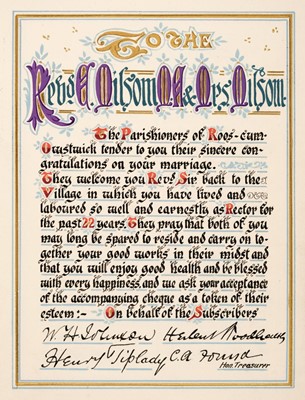 To the
Revd. E. Milsom MA & Mrs Milsom
The Parishioners of Roos-cum-
Owstwick tender to you their sincere con-
gratulations on your marriage.
They welcome you Revd. Sir back to the
Village in which you have lived and
laboured so well and earnestly as Rector for
the past 22 years. They pray that both of you
may long be spared to reside and carry on to-
gether your good works in their midst and
that you will enjoy good health and be blessed
with every happiness, and we ask your acceptance
of the accompanying cheque as a token of their
esteem:- On behalf of the Subscribers
W H Johnson Herbert Woodhouse
Henry Tiplady C.A. Found
Hon. Treasurer